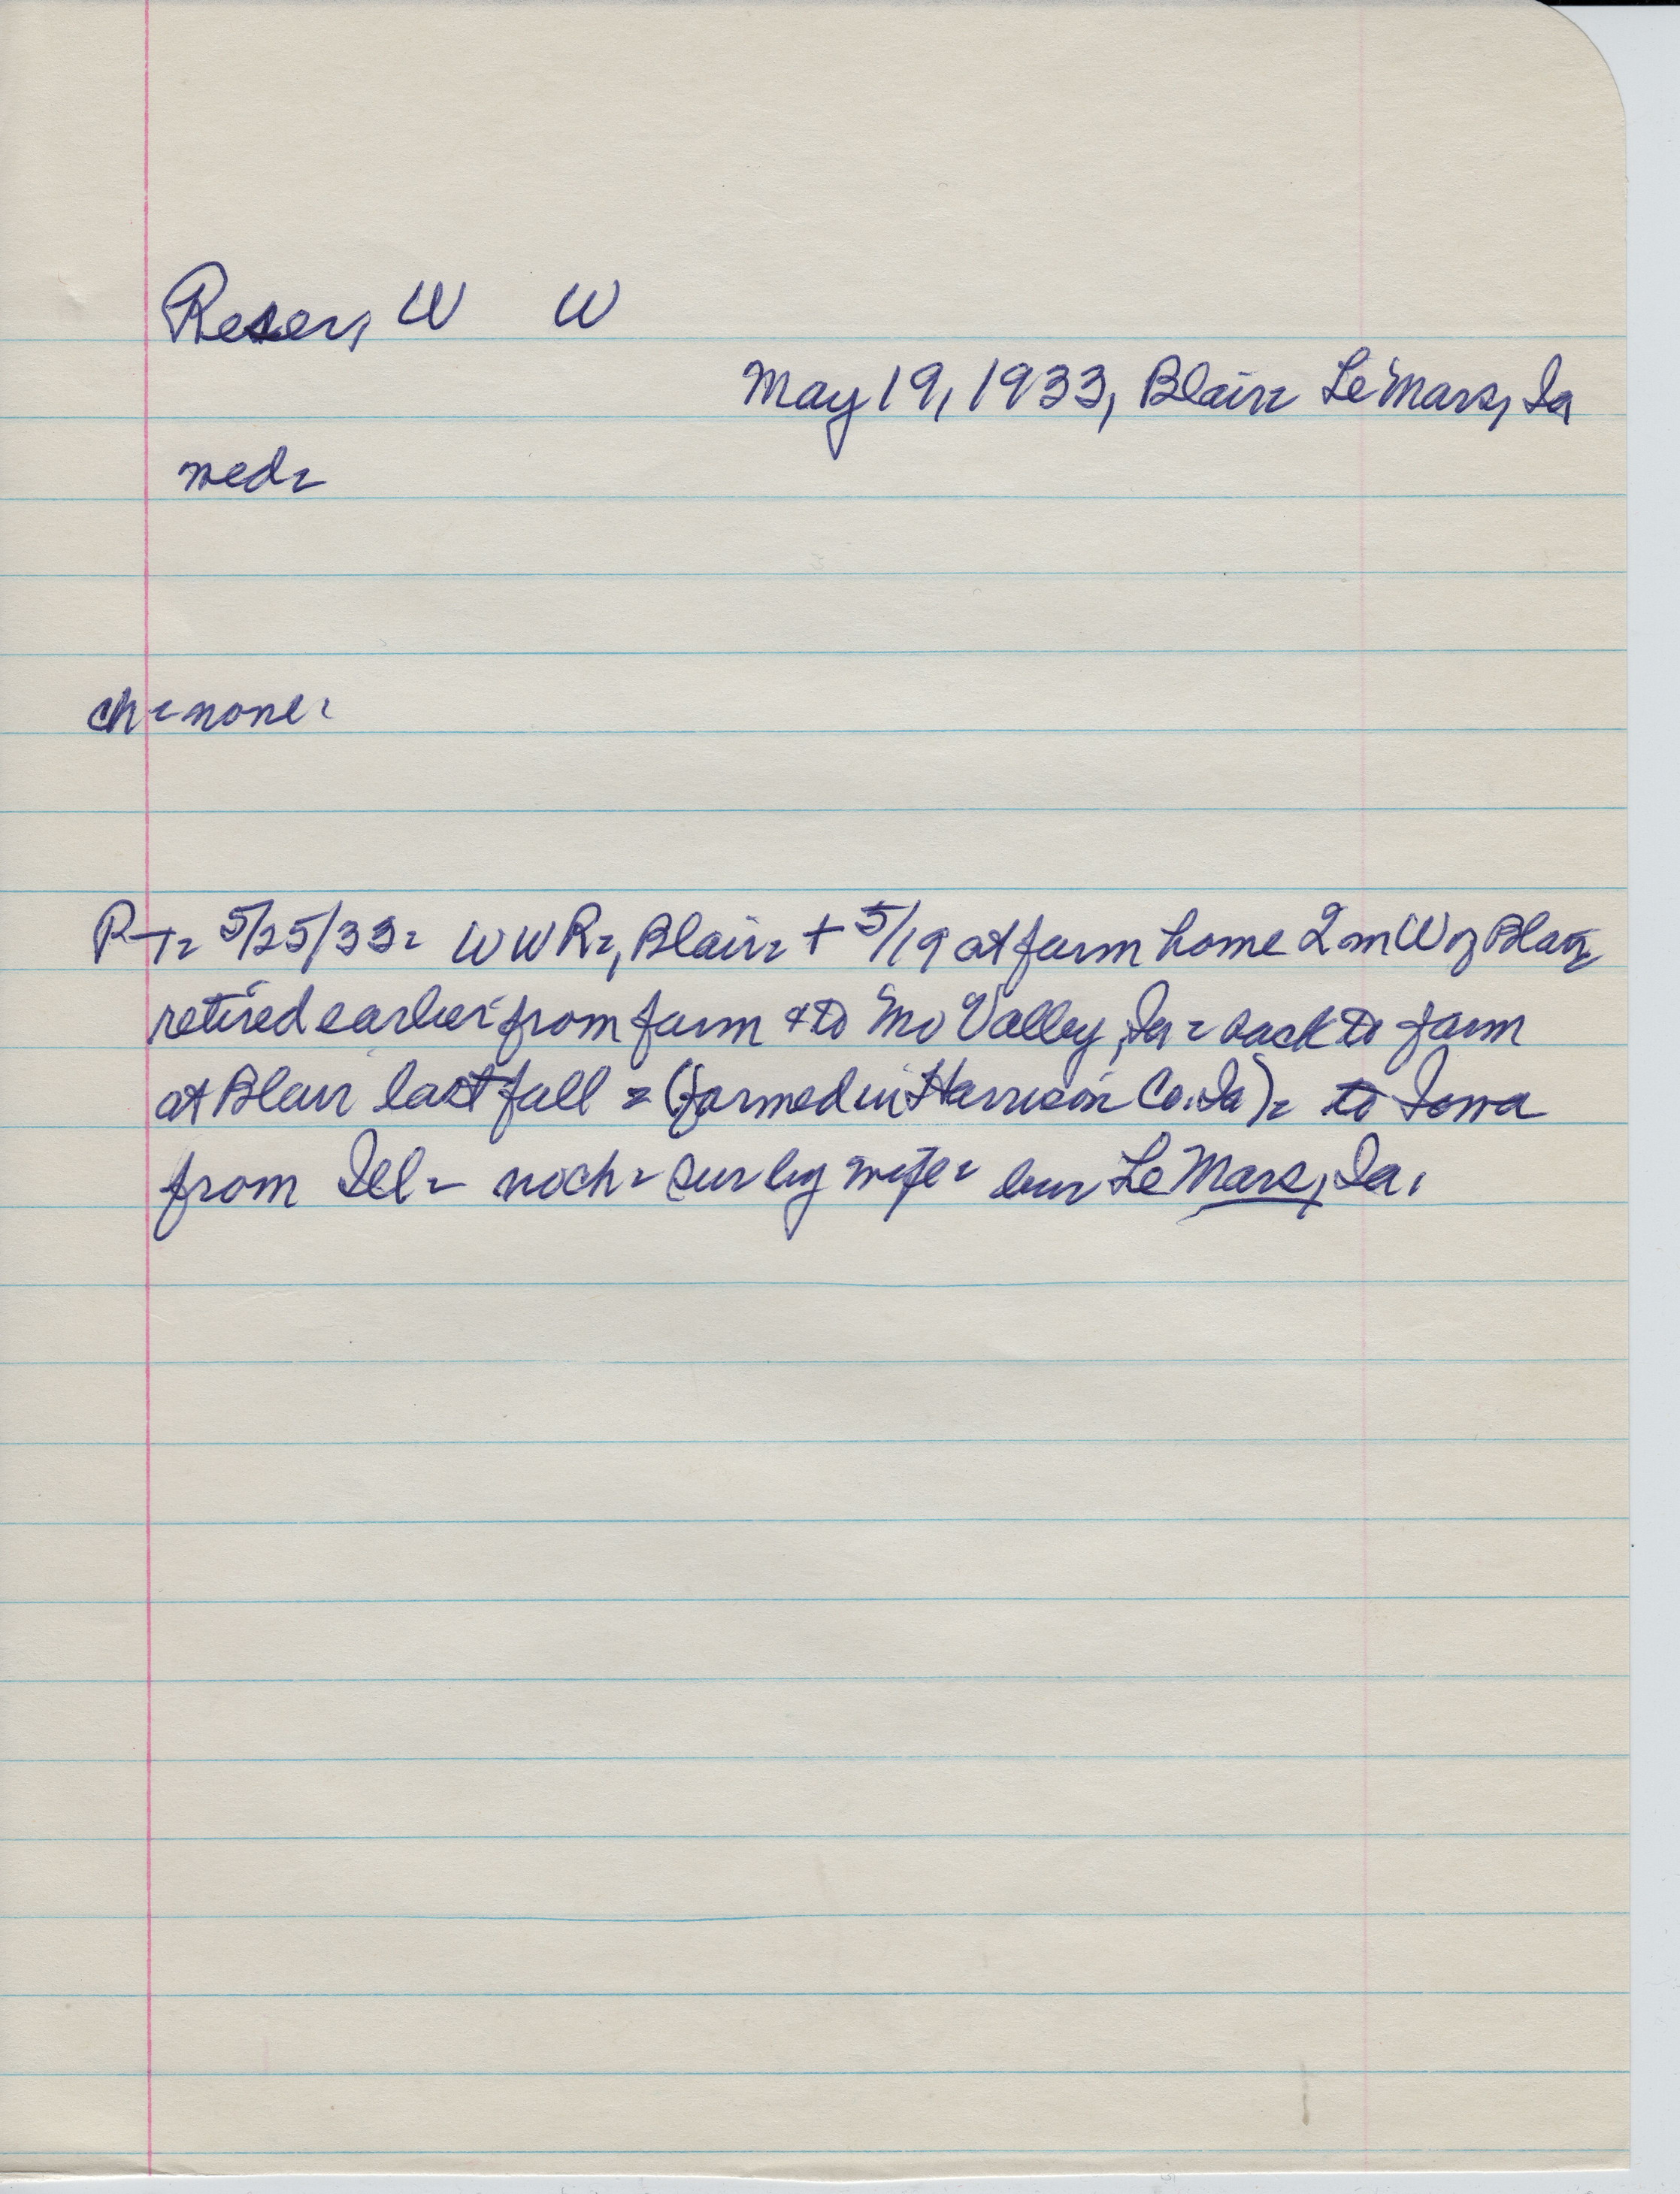 Reser, W W
May 19, 1933, Blair= LeMars, Ia
wed=
ch=none=
P-T= 5/25/33= WWR=, Blair= + 5/19 at farm home 2 m W of Blair
retired earlier from farm & to Mo Valley, Ia= back to farm
at Blair last fall = (farmed in Harrison Co. Ia)= to Iowa
from Ill= no ch= sur by wife= bur LeMars, Ia.